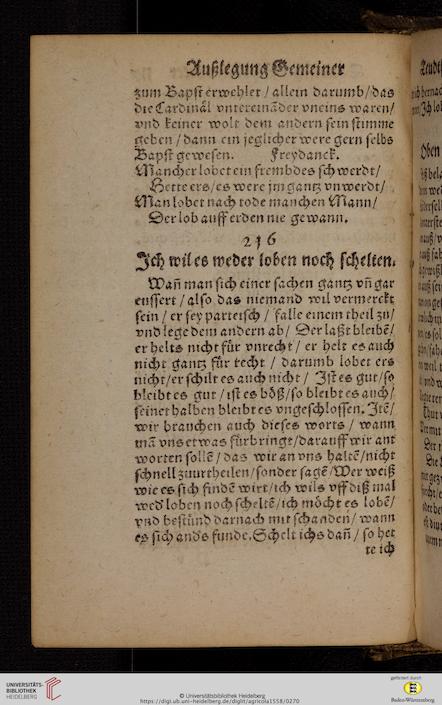 Außlegung Gemeiner
zum Bapst erwehlet / allein darumb / das
die Cardinäl vntereināder vneins waren /
vnd keiner wolt dem andern sein stimme
geben / dann ein jeglicher were gern selbs
Bapst gewesen. Freydanck.
Mancher lobet ein frembdes schwerdt /
Hette ers / es were jm gantz vnwerdt /
Man lobet nach tode manchen Mann /
Der lob auff erden nie gewann.
236
Ich wil es weder loben noch schelten.
Wañ man sich einer sachen gantz vñ gar
eussert / also das niemand wil vermerckt
sein / er sey parteisch / falle einem theil zu /
vnd lege dem andern ab / Der laßt bleibē /
er helts nicht für vnrecht / er helt es auch
nicht gantz für recht / darumb lobet ers
nicht / er schilt es auch nicht / Ist es gut / so
bleibt es gut / ist es böß / so bleibt es auch /
seinet halben bleibt es vngeschlossen. Itē /
wir brauchen auch dieses worts / wann
mā vns etwas fürbringt / darauff wir ant
worten sollē / das wir an vns haltē / nicht
schnell zuurtheilen / sonder sagē / Wer weiß
wie es sich findē wirt / ich wils vff diß mal
wed' loben noch scheltē / ich möcht es lobē /
vnd bestünd darnach mit schanden / wann
es sich and's funde. Schelt ichs dañ / so het
te ich
UNIVERSITÄTS-
BIBLIOTHEK
HEIDELBERG
© Universitätsbibliothek Heidelberg
https://digi.ub.uni-heidelberg.de/diglit/agricola1558/0270
gefördert durch
Baden-Württemberg